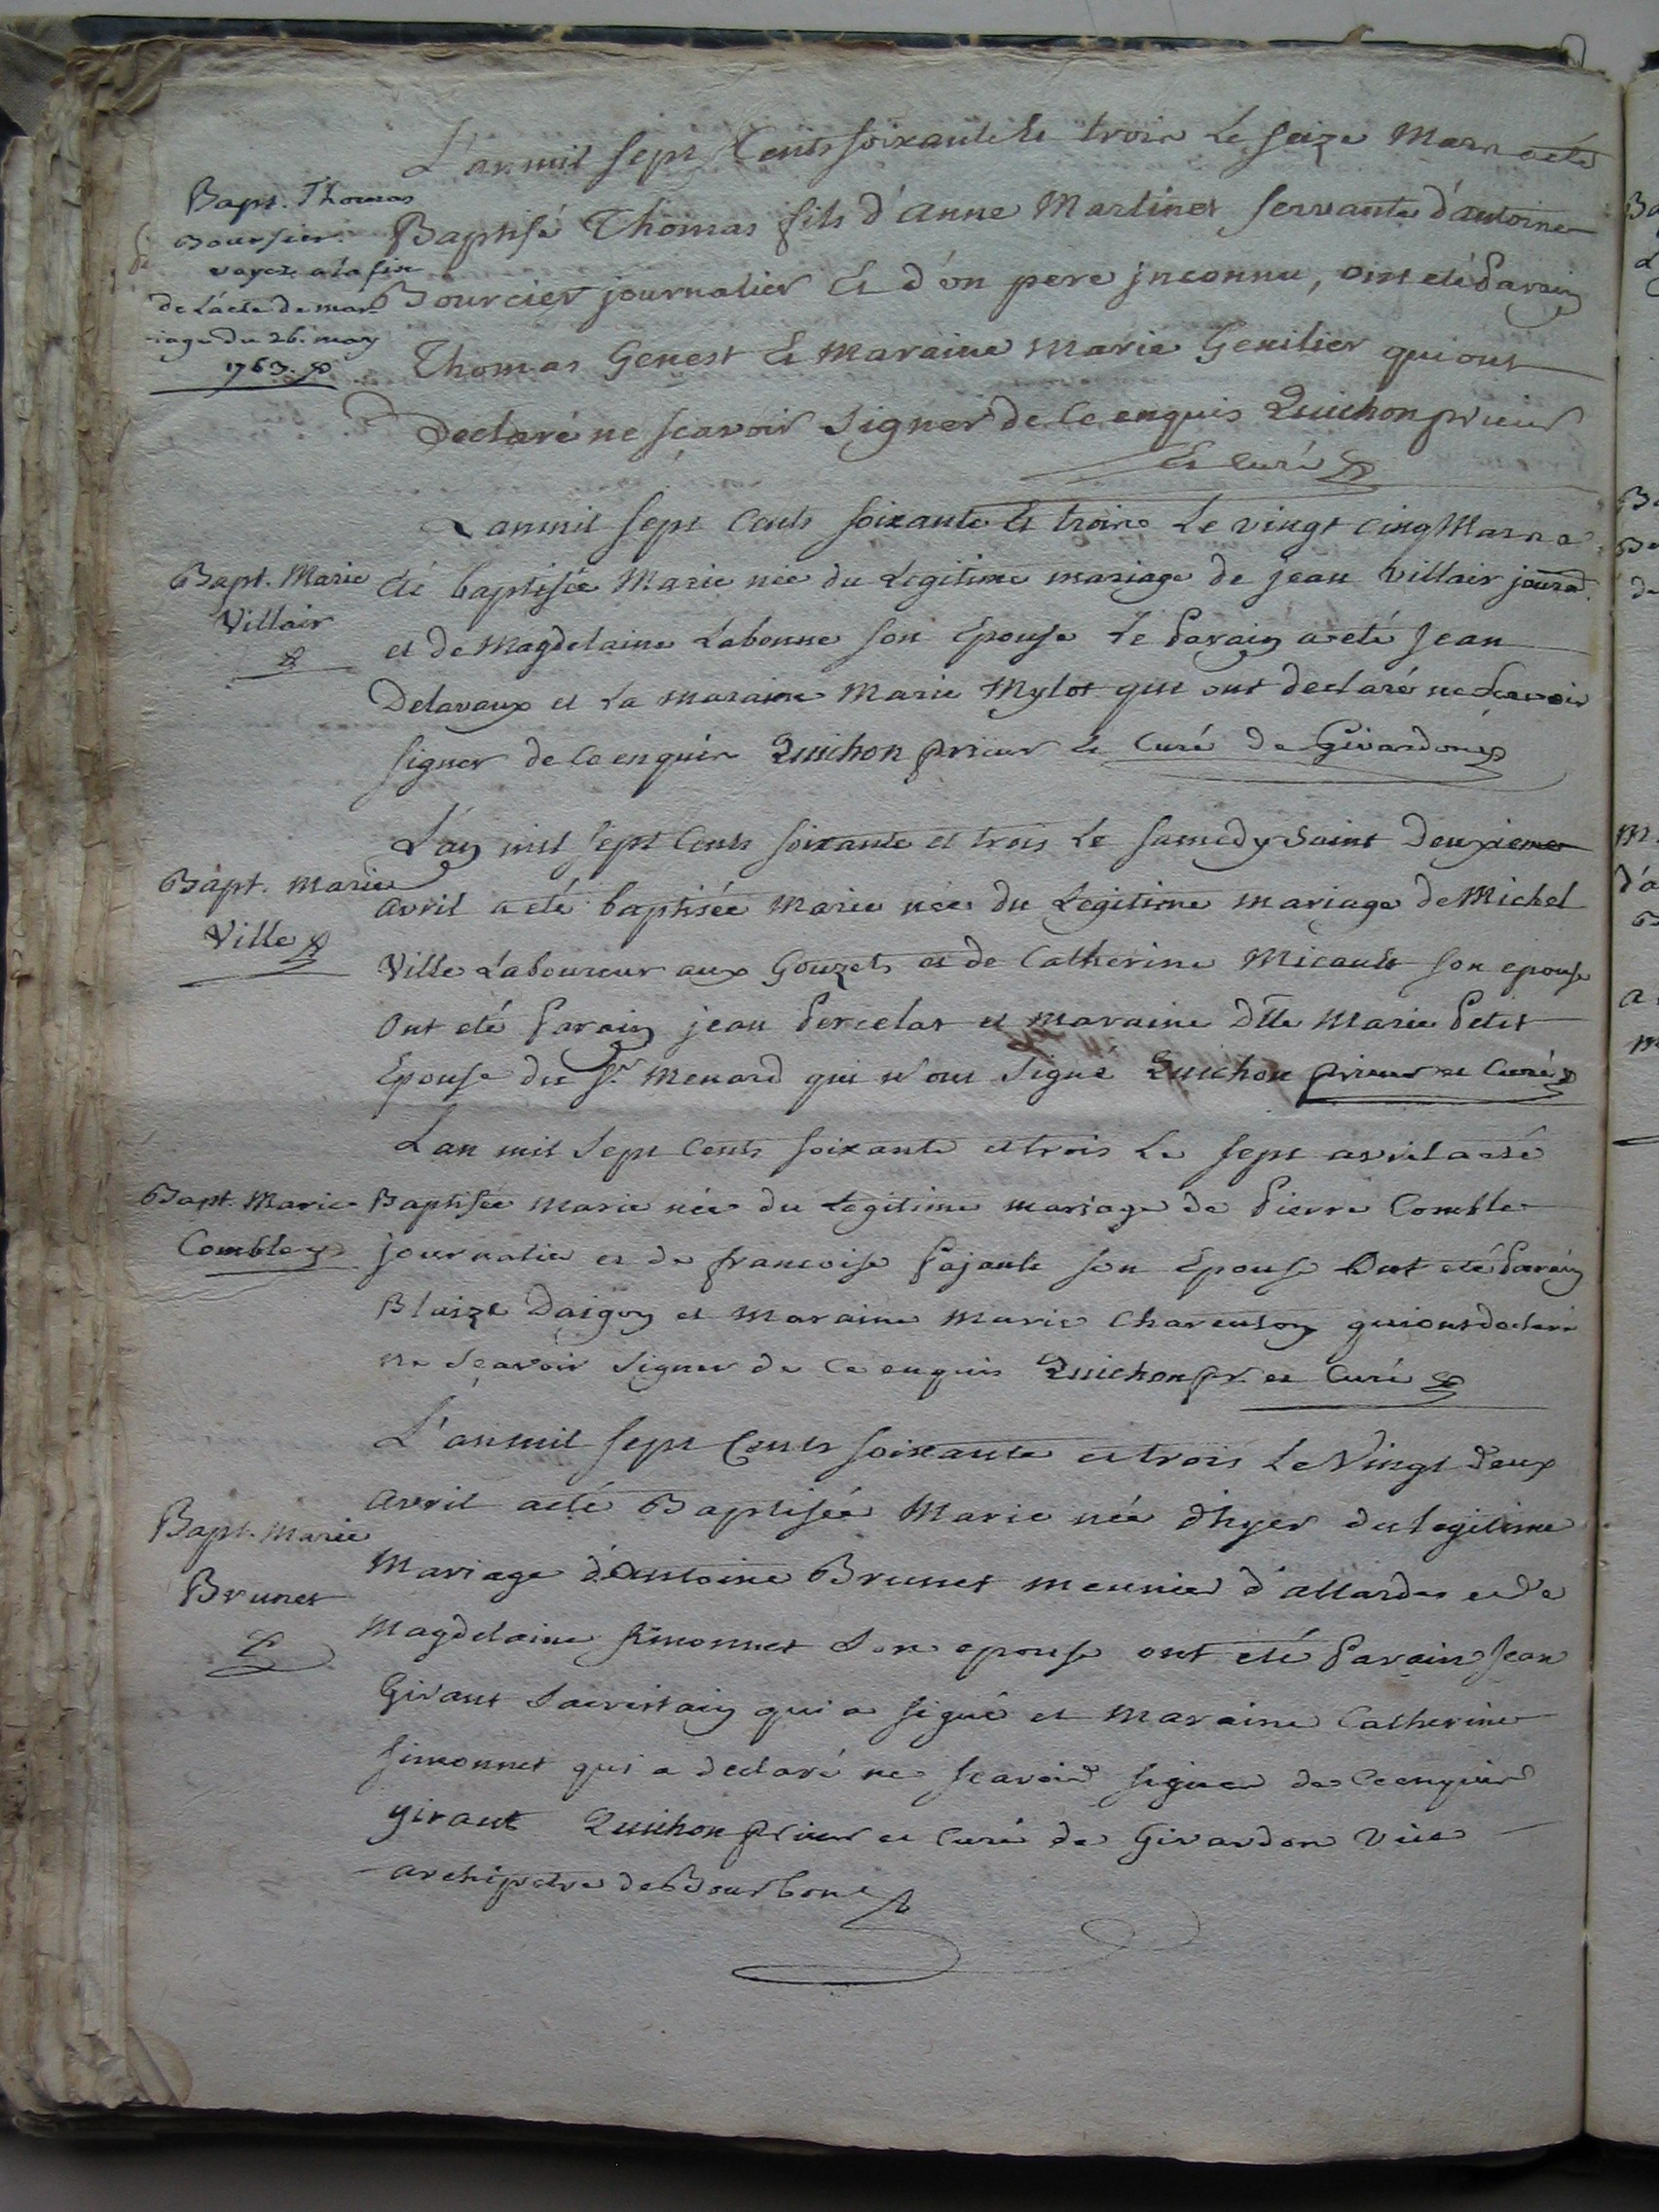 L'an mil sept Cents soixante et trois le seize Mars a eté
Bapt. Thomas
Boursier.
voyez a la fin
de l'acte de mar-
-iage du 26. may
1763.
Baptisé Thomas fils d'anne Martinet servante d'antoine
Bourcier journalier et d'on pere jnconnu, ont eté Parain
Thomas Genest et maraine marie Genilier qui ont
Declaré ne sçavoir signer de ce enquis Quichon prieur
et Curé
L'an mil sept Cents soixante et trois le vingt cinq Mars a
Bapt. Marie
Villair
eté baptisée Marie née du Legitime mariage de jean Villair journ.
et de Magdelaine Labonne son epouse le Parain a eté jean
Delavaux et la maraine Marie Mylot qui ont declaré ne scavoir
signer de ce enquis Quichon prieur et Curé de Givardon
L'an mil sept Cents soixante et trois le samedy saint deuxieme
Bapt. marie
Ville
avril a eté baptisée Marie née du Legitime mariage de Michel
Ville Laboureur aux Gouzets et de Catherine Micault son epouse
Ont eté Parain jean Percelat et maraine Dlle Marie Petit
Epouse du Sr. Menard qui n'ont signé Quichon prieur et Curé
L'an mil sept Cents soixante et trois le sept avril a eté
Bapt. Marie
Comble
Baptisée marie née du Legitime mariage de Pierre Comble
journalier et de francoise Pajault son Epouse Ont eté Parain
Blaize Daigon et maraine Marie Charenton qui ont declaré
ne sçavoir signer de ce enquis Quichon pr. et Curé
L'an mil sept Cents soixante et trois le Vingt deux
Bapt. Marie
Brunet
avril a eté Baptisée Marie née d'hyer du legitime
Mariage d'Antoine Brunet meunier d'allardes et de
Magdelaine simonnet son epouse ont eté Parain jean
Giraut sacristain qui a signé et Maraine Catherine
simonnet qui a declaré ne scavoir signer de ce enquise
giraut Quichon prieur et Curé de Givardon vice
archipretre de Bourbon